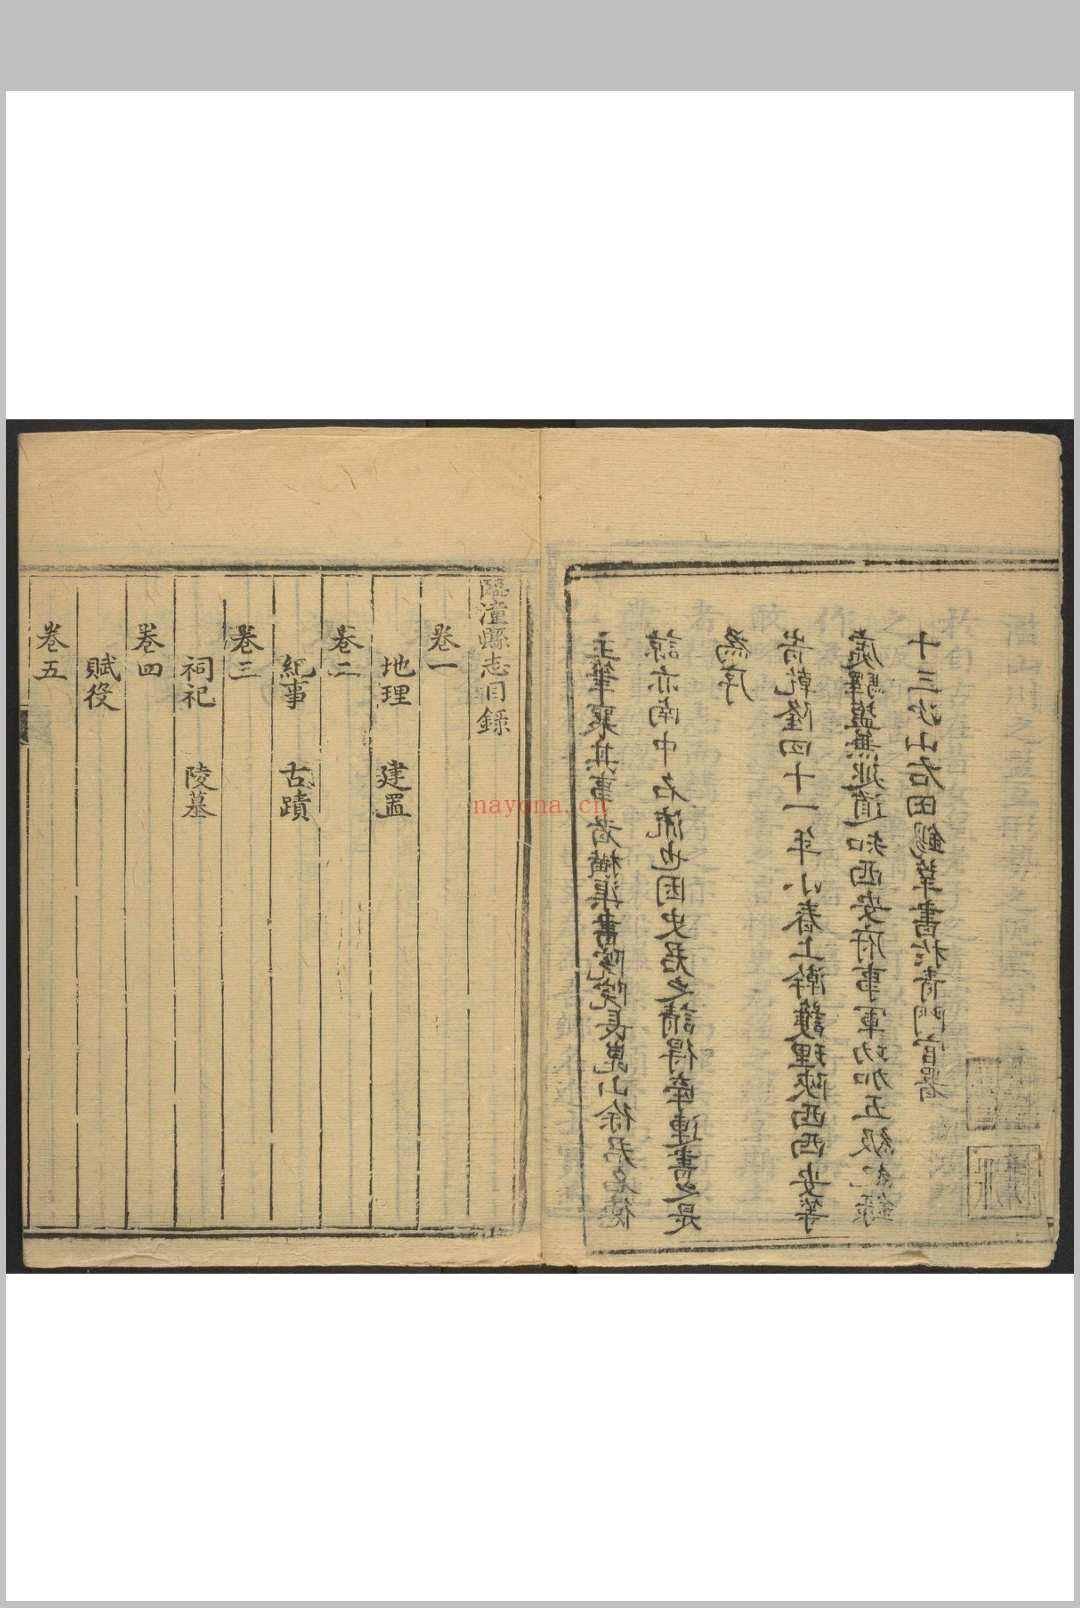 主筆襄其事者橫渠書院院長崑山徐君名德
諒亦南中名流也因史君之請得牽連書之是
為序
峕乾隆四十一年小春上澣護理陝西西安等
處驛鹽兼巡道知西安府事軍功加五級紀錄
十三次山右田錫莘書於青門官署
臨潼縣志目録
卷一
地理　建置
卷二
紀事　古蹟
卷三
祠祀　陵墓
卷四
賦役
卷五
nayona.cn